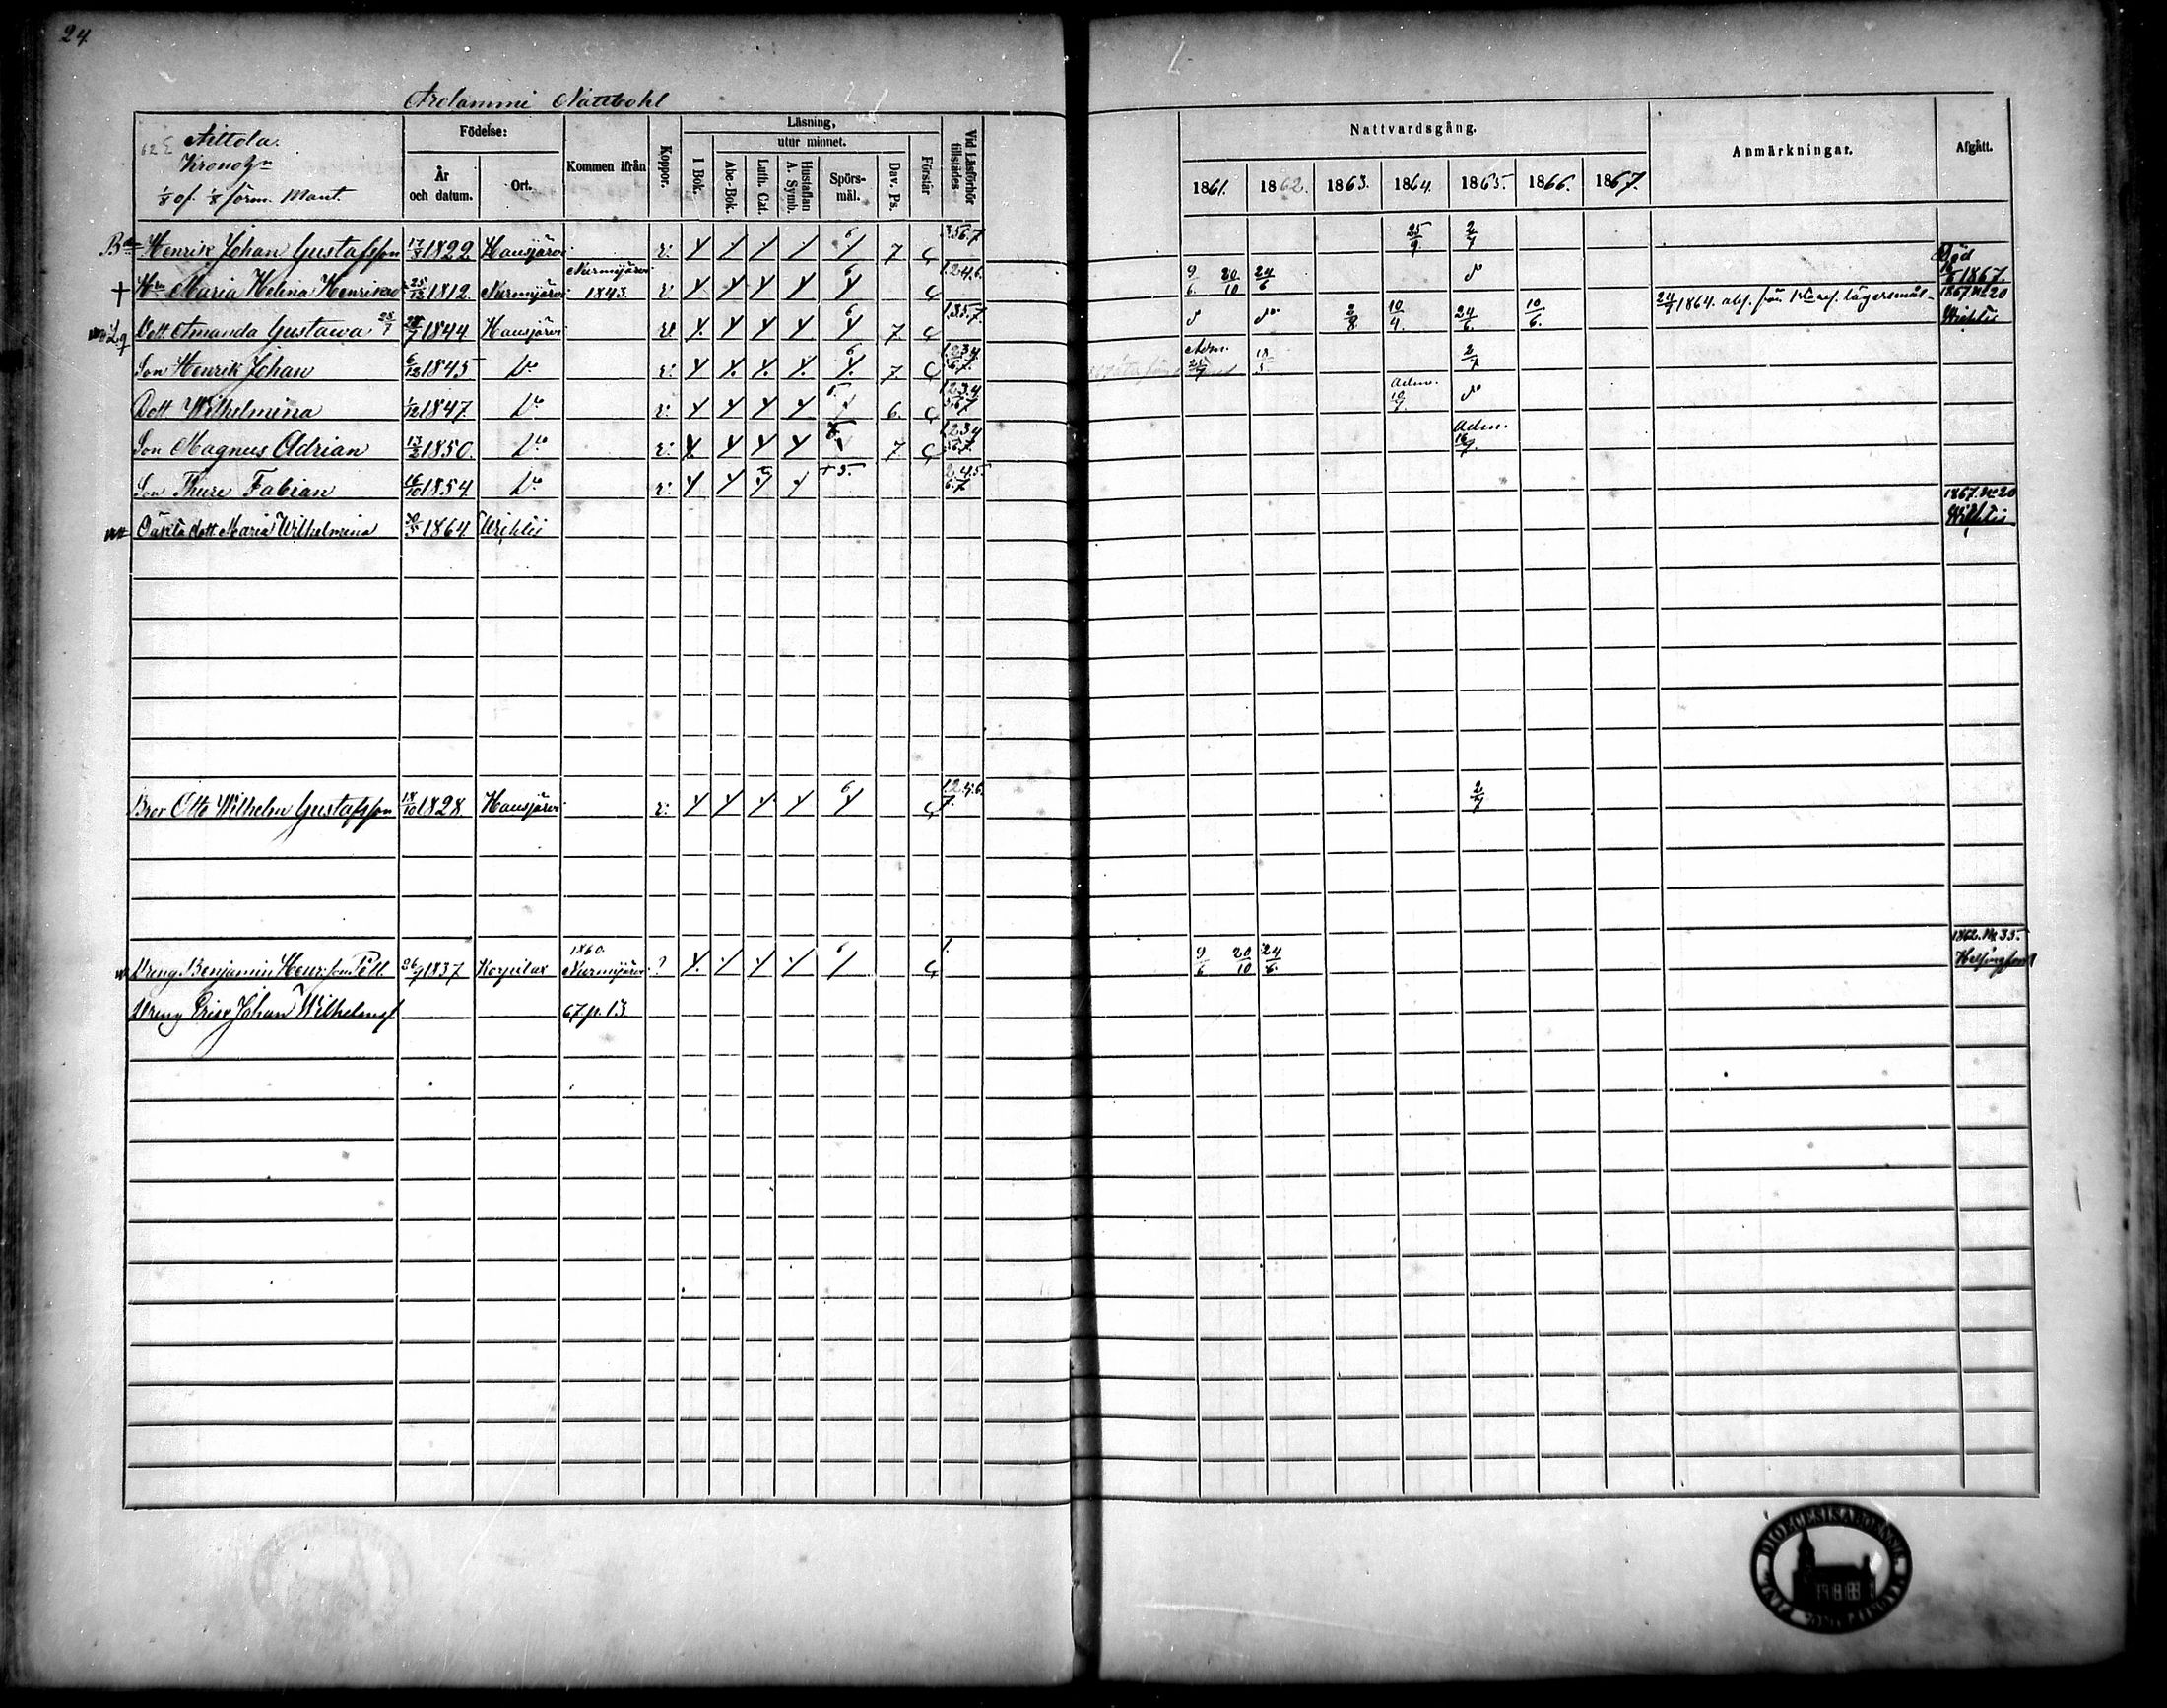 24.
Arolammi Nättbohl
62 Aittola.
Kronohn
1/8 of. 1/8 förm. Mant.
Födelse:
År och datum.
Ort.
Kommen ifrån
Koppor.
Läsning,
utur minnet.
I Bok.
Abc-Bok.
Luth. Cat.
Hustaflan A. Symb.
Spörs-mål.
Dav. Ps.
Förstår
Vid Läsförhör tillstädes
Nattvardsgång.
1861. 1862. 1863. 1864. 1865. 1866. 1867.
Anmärkningar.
Afgått.
Henrik Johan Gustafsson 1822 Hausjärvi v. 6 7 3.5.6.7 25/9. 2/7
Hu Maria Helena Henriksd 25/12 1812. Nurmijärvi Nurmijärvi 1843. v. 6 1.2.4.6. 9/6. 20/10 24/6 Död 1867.
Dott. Amanda Gustava 28/7 1844. Hausjärvi v. 6 7. 1.3.5.7. 2/8 10/4. 24/6. 10/6. 24/7 1864. abs. för lägersmål. 1867. No 20 Wichtis
Son Henrik Johan 6/12 1845 Do v. 6 7. 1.2.3.4. 6.7. Adm. 18 2/7
Dott Wilhelmina 1/12 1847. Do v. 6. 1.2.3.4 5.6.7 adm. 10 do
Son Magnus Adrian 13/2 1850. Do v. 7 1.2.3.4 5.6.7. Adm. 16/9.
Son Thure Fabian 1854. Do v. 5. 2.4.5. 6.7
Oäkta dott. Maria Wilhelmina 1864. Wichtis 1867. No 20 Wichtis
Bror Otto Wilhelm Gustafsson 18/10 1828. Hausjärvi v. 6 1.2.4.6. 7. 2/7
Dreng Benjamin Henr.son Pell 26/9 1837 Korpilax 1860. Nurmijärvi ? 6 1. 9/6 20/10 24/6. 1862. No 35. Helsingfors
Dreng Eric Johan Wilhelmsf 67. p. 13
DIOECESIS ABOENSIS